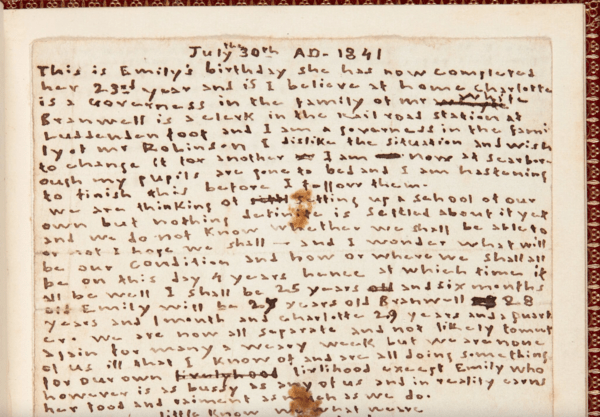 July the 30th AD - 1841
This is Emily's birthday she has now completed
her 23rd year and is I believe at home Charlotte
is a Governess in the family of mr White
Branwell is a clerk in the rail road station at
Luddenden foot and I am a governess in the fami-
ly of mr Robinson I dislike the situation and wish
to change it for another I am now at scarbor-
ough my pupils are gone to bed and I am hastening
to finish this before I follow them-
we are thinking of setting up a school of our
own but nothing definite is settled about it yet
and we do not know whether we shall be able to
or not I hope we shall - and I wonder what will
be our condition and how or where we shall all
be on this day 4 years hence at which time if
all be well I shall be 25 years and six months
old Emily will be 27 years old Branwell 28
years and 1 month and charlotte 29 years and a quart
er. we are now all separate and not likely to meet
again for many a weary week but we are none
of us ill that I know of and are all doing something
for our own livlihood except Emily who
however is as bussy as any of us and in reality earns
her food and raiment as much as we do.
little know we what we are